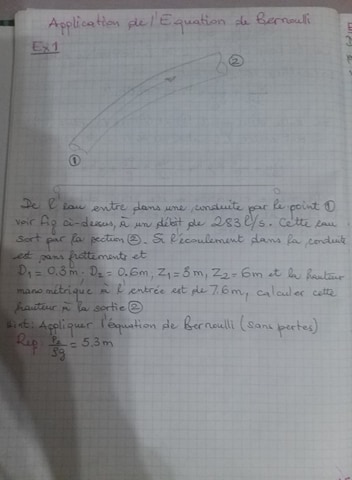 Application de l'Equation de Bernoulli
Ex1
②
①
De l'eau entre dans une conduite par le point ①
voir fig ci-dessus, à un débit de 283 l/s. Cette eau
sort par la section ②. Si l'écoulement dans la conduite
est sans frottements et
D1 = 0.3m. D2 = 0.6m, Z1 = 3m, Z2 = 6m et la hauteur
manométrique à l'entrée est de 7.6m, calculer cette
hauteur à la sortie ②
Appliquer l'équation de Bernoulli (sans pertes)
Rep P2/ρg = 5.3m